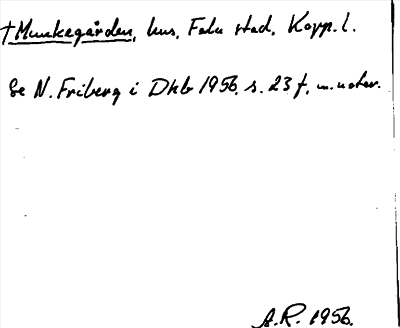 †Munkegården, hus, Falu stad, Kopp. l.
Se N. Friberg i Dhb 1956. s. 23 f, m. noter.
A.R. 1956.